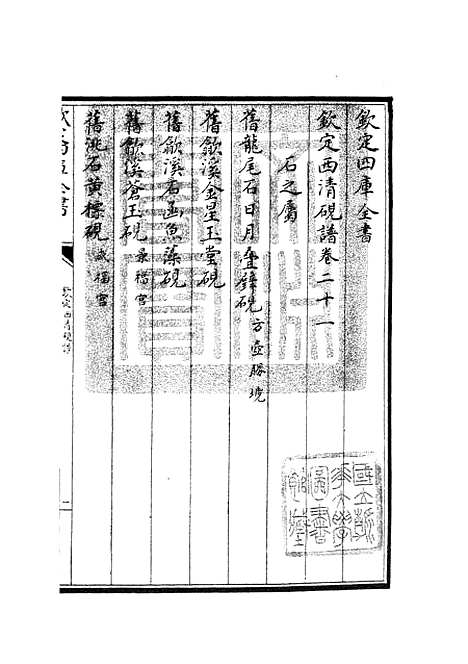 欽定四庫全書
欽定西清硯譜卷二十一
石之屬
舊龍尾石日月疊璧硯 方壺勝境
舊歙溪金星玉堂硯
舊歙溪石函魚藻硯
舊歙溪蒼玉硯 永福宮
舊洮石黃標硯 咸福宮
欽定四庫全書
欽定西清硯譜
一
國立
大學
圖書